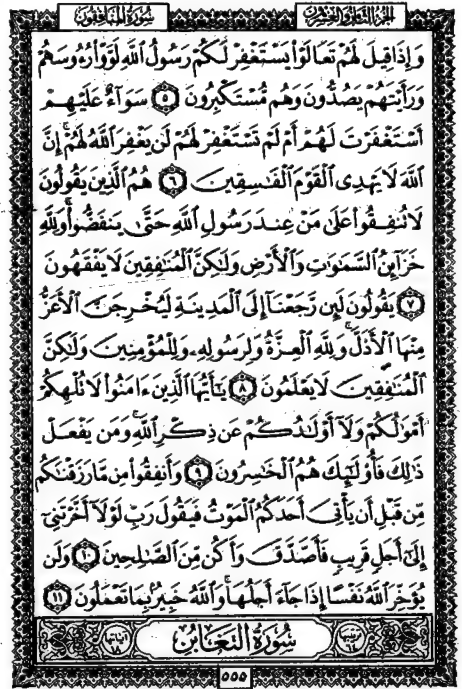 سُورَةُ المُنَافِقُون
الجُزْءُ الثَّامِنُ وَالعِشْرُونَ
وَإِذَا قِيلَ لَهُمْ تَعَالَوْا۟ يَسْتَغْفِرْ لَكُمْ رَسُولُ ٱللَّهِ لَوَّوْا۟ رُءُوسَهُمْ
وَرَأَيْتَهُمْ يَصُدُّونَ وَهُم مُّسْتَكْبِرُونَ ٥ سَوَآءٌ عَلَيْهِمْ
أَسْتَغْفَرْتَ لَهُمْ أَمْ لَمْ تَسْتَغْفِرْ لَهُمْ لَن يَغْفِرَ ٱللَّهُ لَهُمْ ۚ إِنَّ
ٱللَّهَ لَا يَهْدِى ٱلْقَوْمَ ٱلْفَـٰسِقِينَ ٦ هُمُ ٱلَّذِينَ يَقُولُونَ
لَا تُنفِقُوا۟ عَلَىٰ مَنْ عِندَ رَسُولِ ٱللَّهِ حَتَّىٰ يَنفَضُّوا۟ ۗ وَلِلَّهِ
خَزَآئِنُ ٱلسَّمَـٰوَٰتِ وَٱلْأَرْضِ وَلَـٰكِنَّ ٱلْمُنَـٰفِقِينَ لَا يَفْقَهُونَ
٧ يَقُولُونَ لَئِن رَّجَعْنَآ إِلَى ٱلْمَدِينَةِ لَيُخْرِجَنَّ ٱلْأَعَزُّ
مِنْهَا ٱلْأَذَلَّ ۚ وَلِلَّهِ ٱلْعِزَّةُ وَلِرَسُولِهِۦ وَلِلْمُؤْمِنِينَ وَلَـٰكِنَّ
ٱلْمُنَـٰفِقِينَ لَا يَعْلَمُونَ ٨ يَـٰٓأَيُّهَا ٱلَّذِينَ ءَامَنُوا۟ لَا تُلْهِكُمْ
أَمْوَٰلُكُمْ وَلَآ أَوْلَـٰدُكُمْ عَن ذِكْرِ ٱللَّهِ ۚ وَمَن يَفْعَلْ
ذَٰلِكَ فَأُو۟لَـٰٓئِكَ هُمُ ٱلْخَـٰسِرُونَ ٩ وَأَنفِقُوا۟ مِن مَّا رَزَقْنَـٰكُم
مِّن قَبْلِ أَن يَأْتِىَ أَحَدَكُمُ ٱلْمَوْتُ فَيَقُولَ رَبِّ لَوْلَآ أَخَّرْتَنِىٓ
إِلَىٰٓ أَجَلٍ قَرِيبٍ فَأَصَّدَّقَ وَأَكُن مِّنَ ٱلصَّـٰلِحِينَ ١٠ وَلَن
يُؤَخِّرَ ٱللَّهُ نَفْسًا إِذَا جَآءَ أَجَلُهَا ۚ وَٱللَّهُ خَبِيرٌۢ بِمَا تَعْمَلُونَ ١١
ترتيبها ٦٤ سُورَةُ التَّغَابُنِ آياتها ١٨
٥٥٥